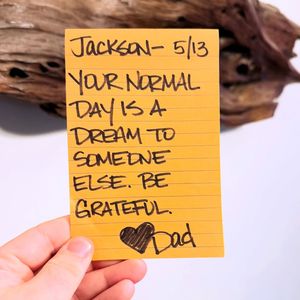 JACKSON- 5/13
YOUR NORMAL
DAY IS A
DREAM TO
SOMEONE
ELSE. BE
GRATEFUL.
Dad